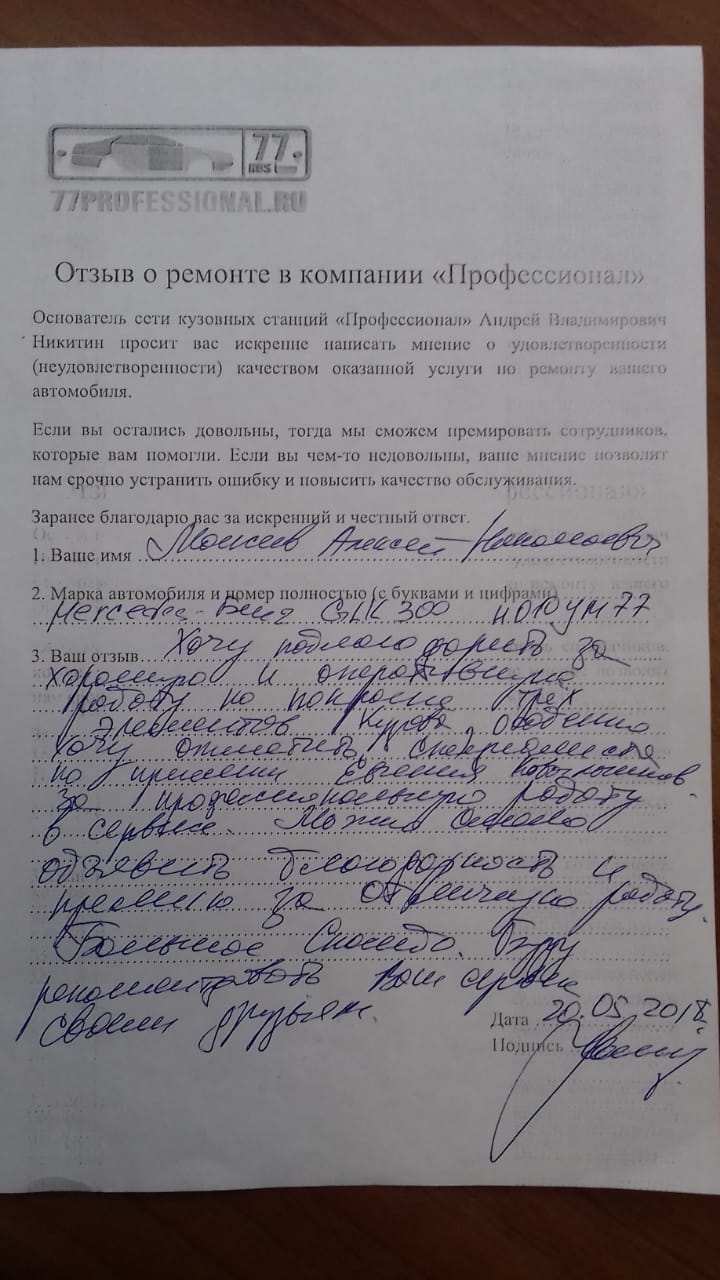 77
RUS
77PROFESSIONAL.RU
Отзыв о ремонте в компании «Профессионал»
Основатель сети кузовных станций «Профессионал» Андрей Владимирович
Никитин просит вас искренне написать мнение о удовлетворенности
(неудовлетворенности) качеством оказанной услуги по ремонту вашего
автомобиля.
Если вы остались довольны, тогда мы сможем премировать сотрудников,
которые вам помогли. Если вы чем-то недовольны, ваше мнение позволит
нам срочно устранить ошибку и повысить качество обслуживания.
Заранее благодарю вас за искренний и честный ответ.
1. Ваше имя Моисеев Алексей Николаевич
2. Марка автомобиля и номер полностью (с буквами и цифрами)
Мерседес-Бенц GLK 300
3. Ваш отзыв Хочу поблагодарить за
хорошую и оперативную
работу по покраске трех
элементов кузова, особенно
хочу отметить специалиста
по приемки Евгения
за профессиональную работу
в сервисе.
объявить благодарность и
премию за отличную работу.
Большое Спасибо. Буду
рекомендовать Ваш сервис
своим друзьям.
Дата 20.05.2018.
Подпись